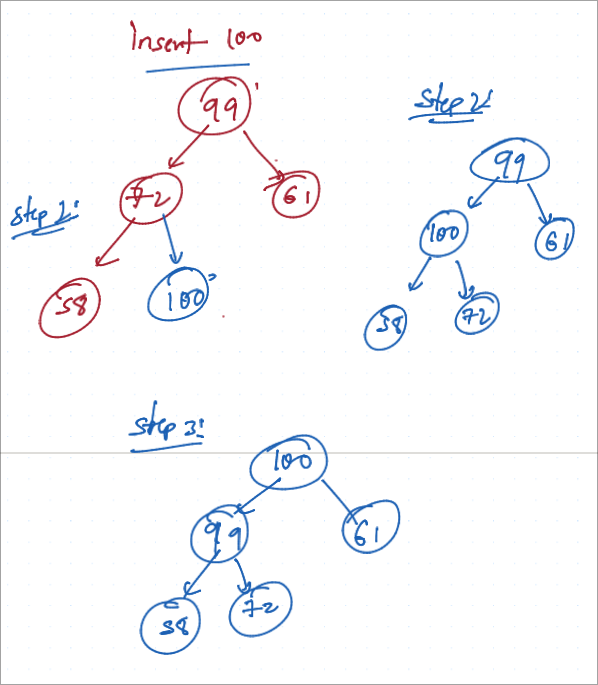 Insert 100
99
72
61
Step 1:
58
100
Step 2:
99
100
61
58
72
Step 3:
100
99
61
58
72